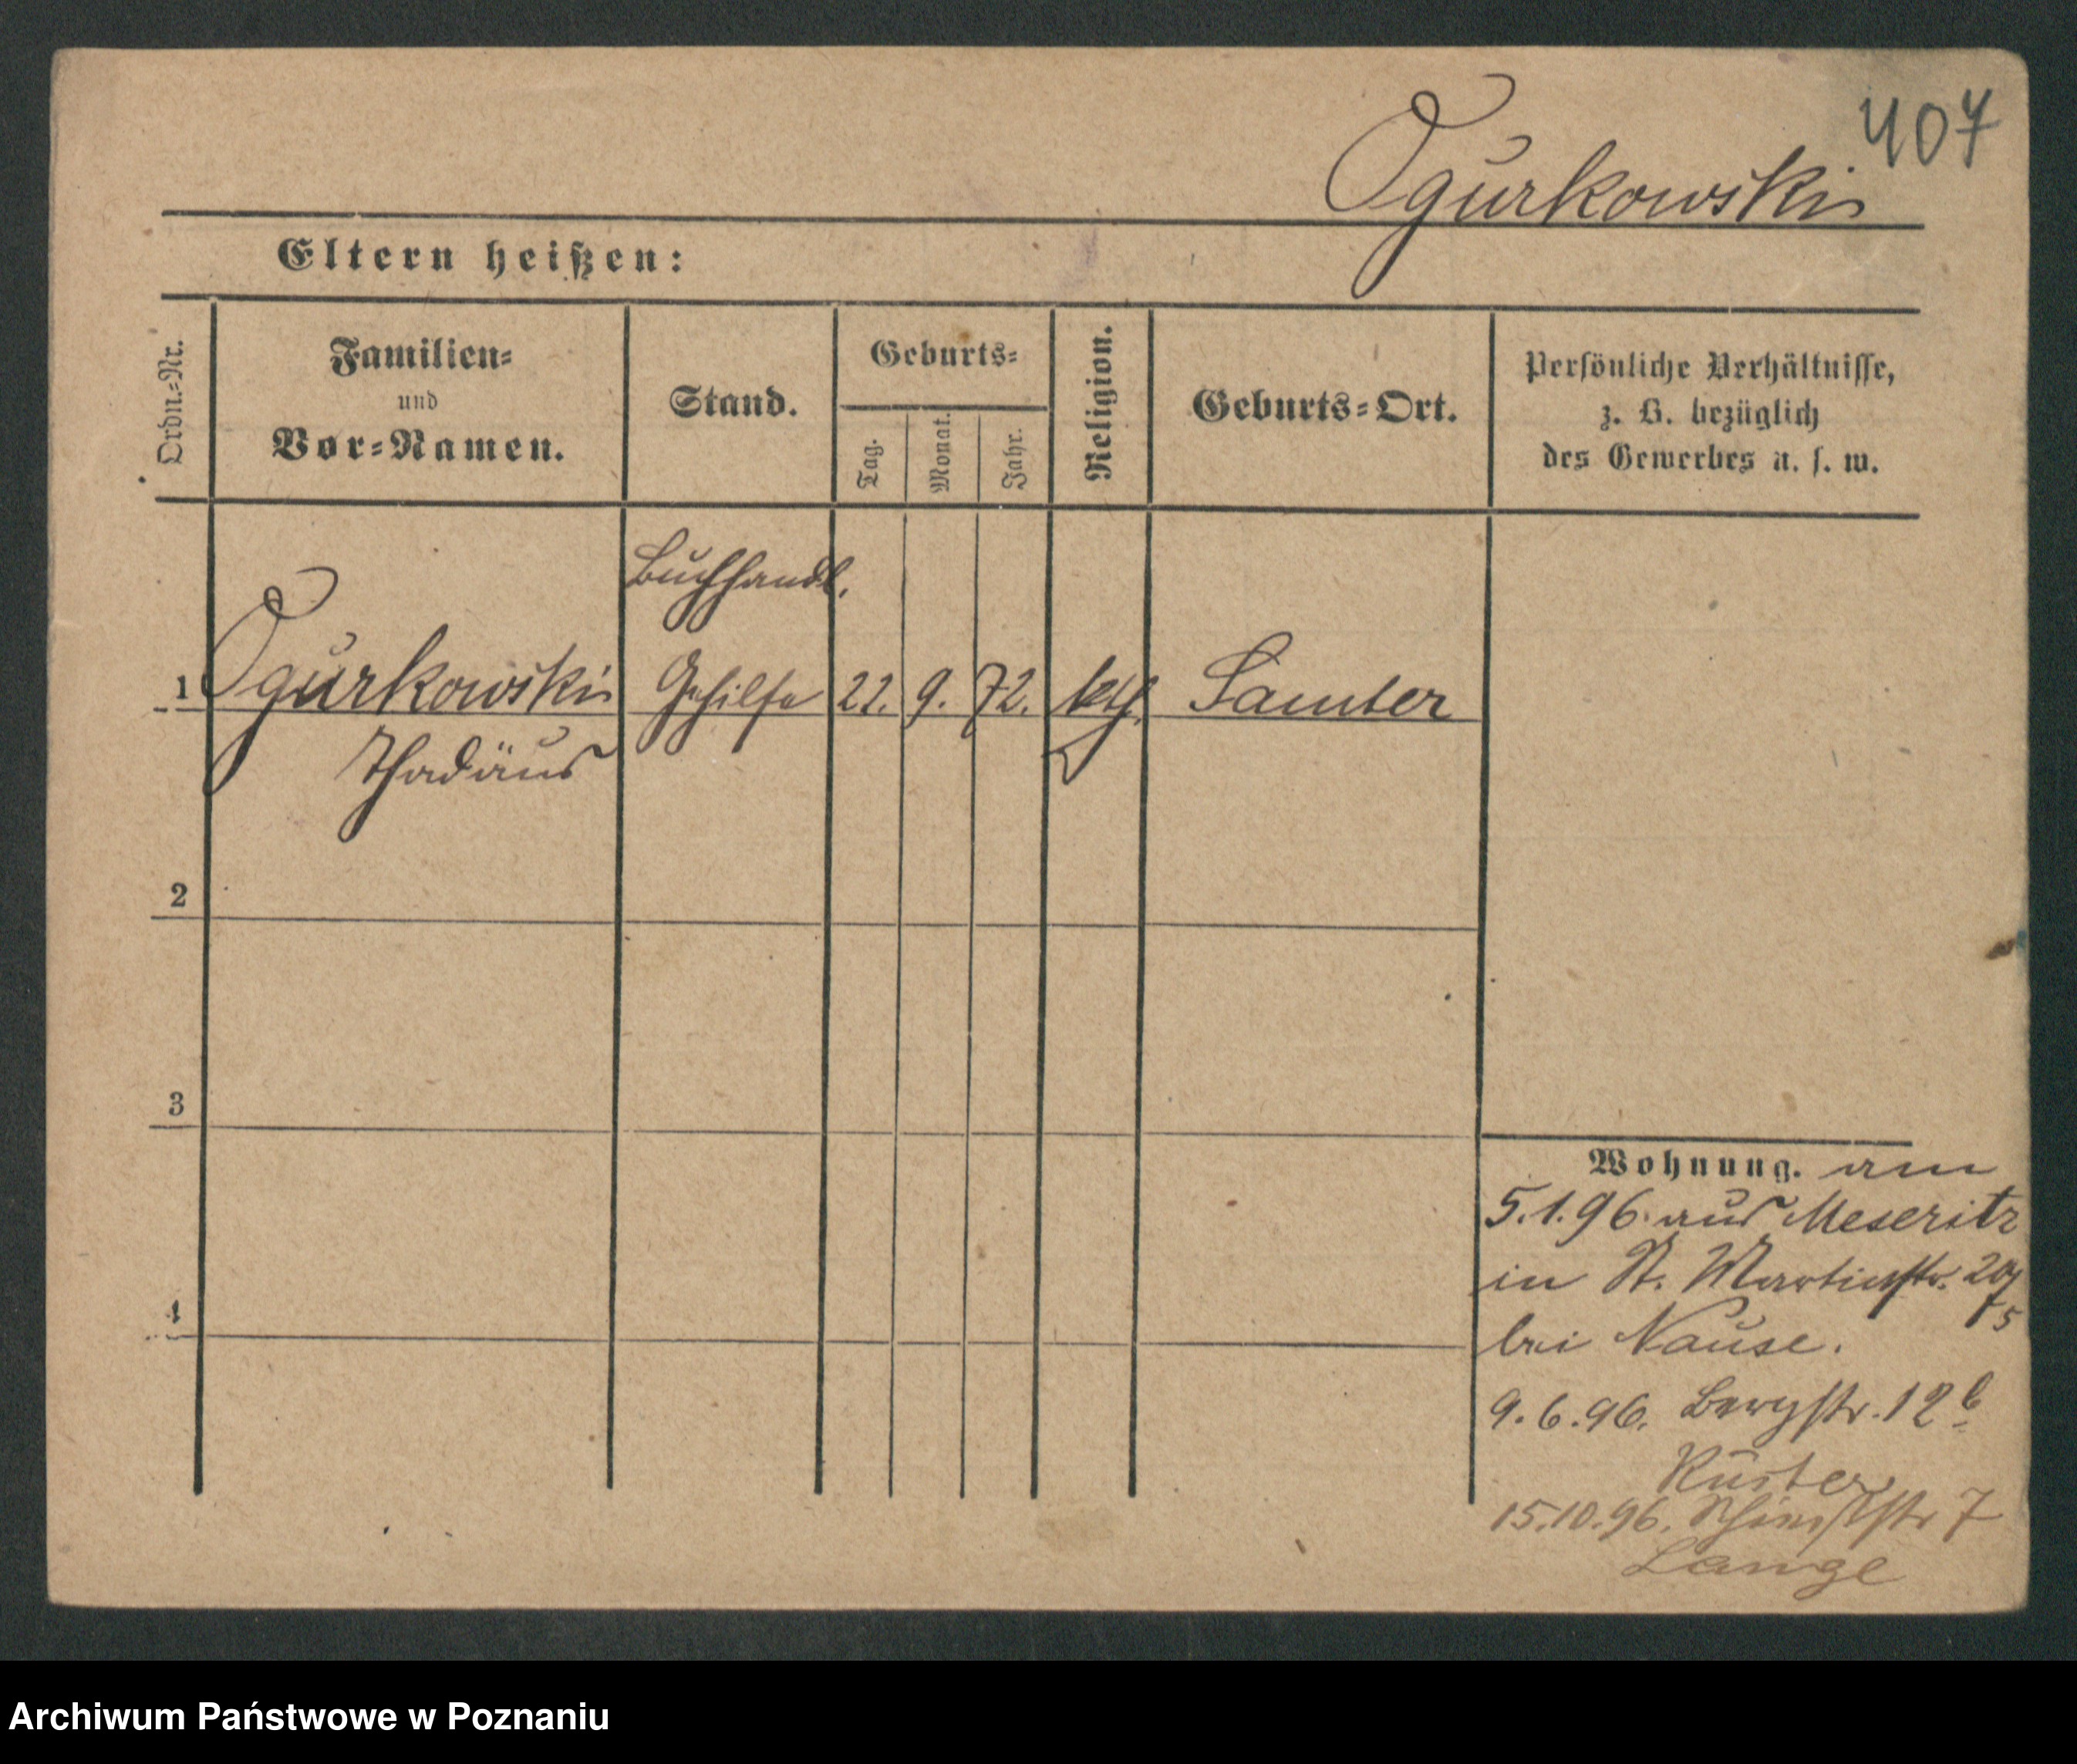 407
Ogurkowski
Eltern heißen:
Ordn.-Nr.
Familien-
und
Vor-Namen.
Stand.
Geburts-
Tag.
Monat.
Jahr.
Religion.
Geburts-Ort.
Persönliche Verhältnisse,
z. B. bezüglich
des Gewerbes u. s. w.
Buchhandl.
1 Ogurkowski Gehilfe 22. 9. 72. kth. Samter
Thadäus
2
3
4
Wohnung. am
5.1.96 aus Meseritz
in St. Martinstr. 20/
bei Nause.
9.6.96. Bergstr. 12b
Küster
15.10.96. 7
Lange
Archiwum Państwowe w Poznaniu